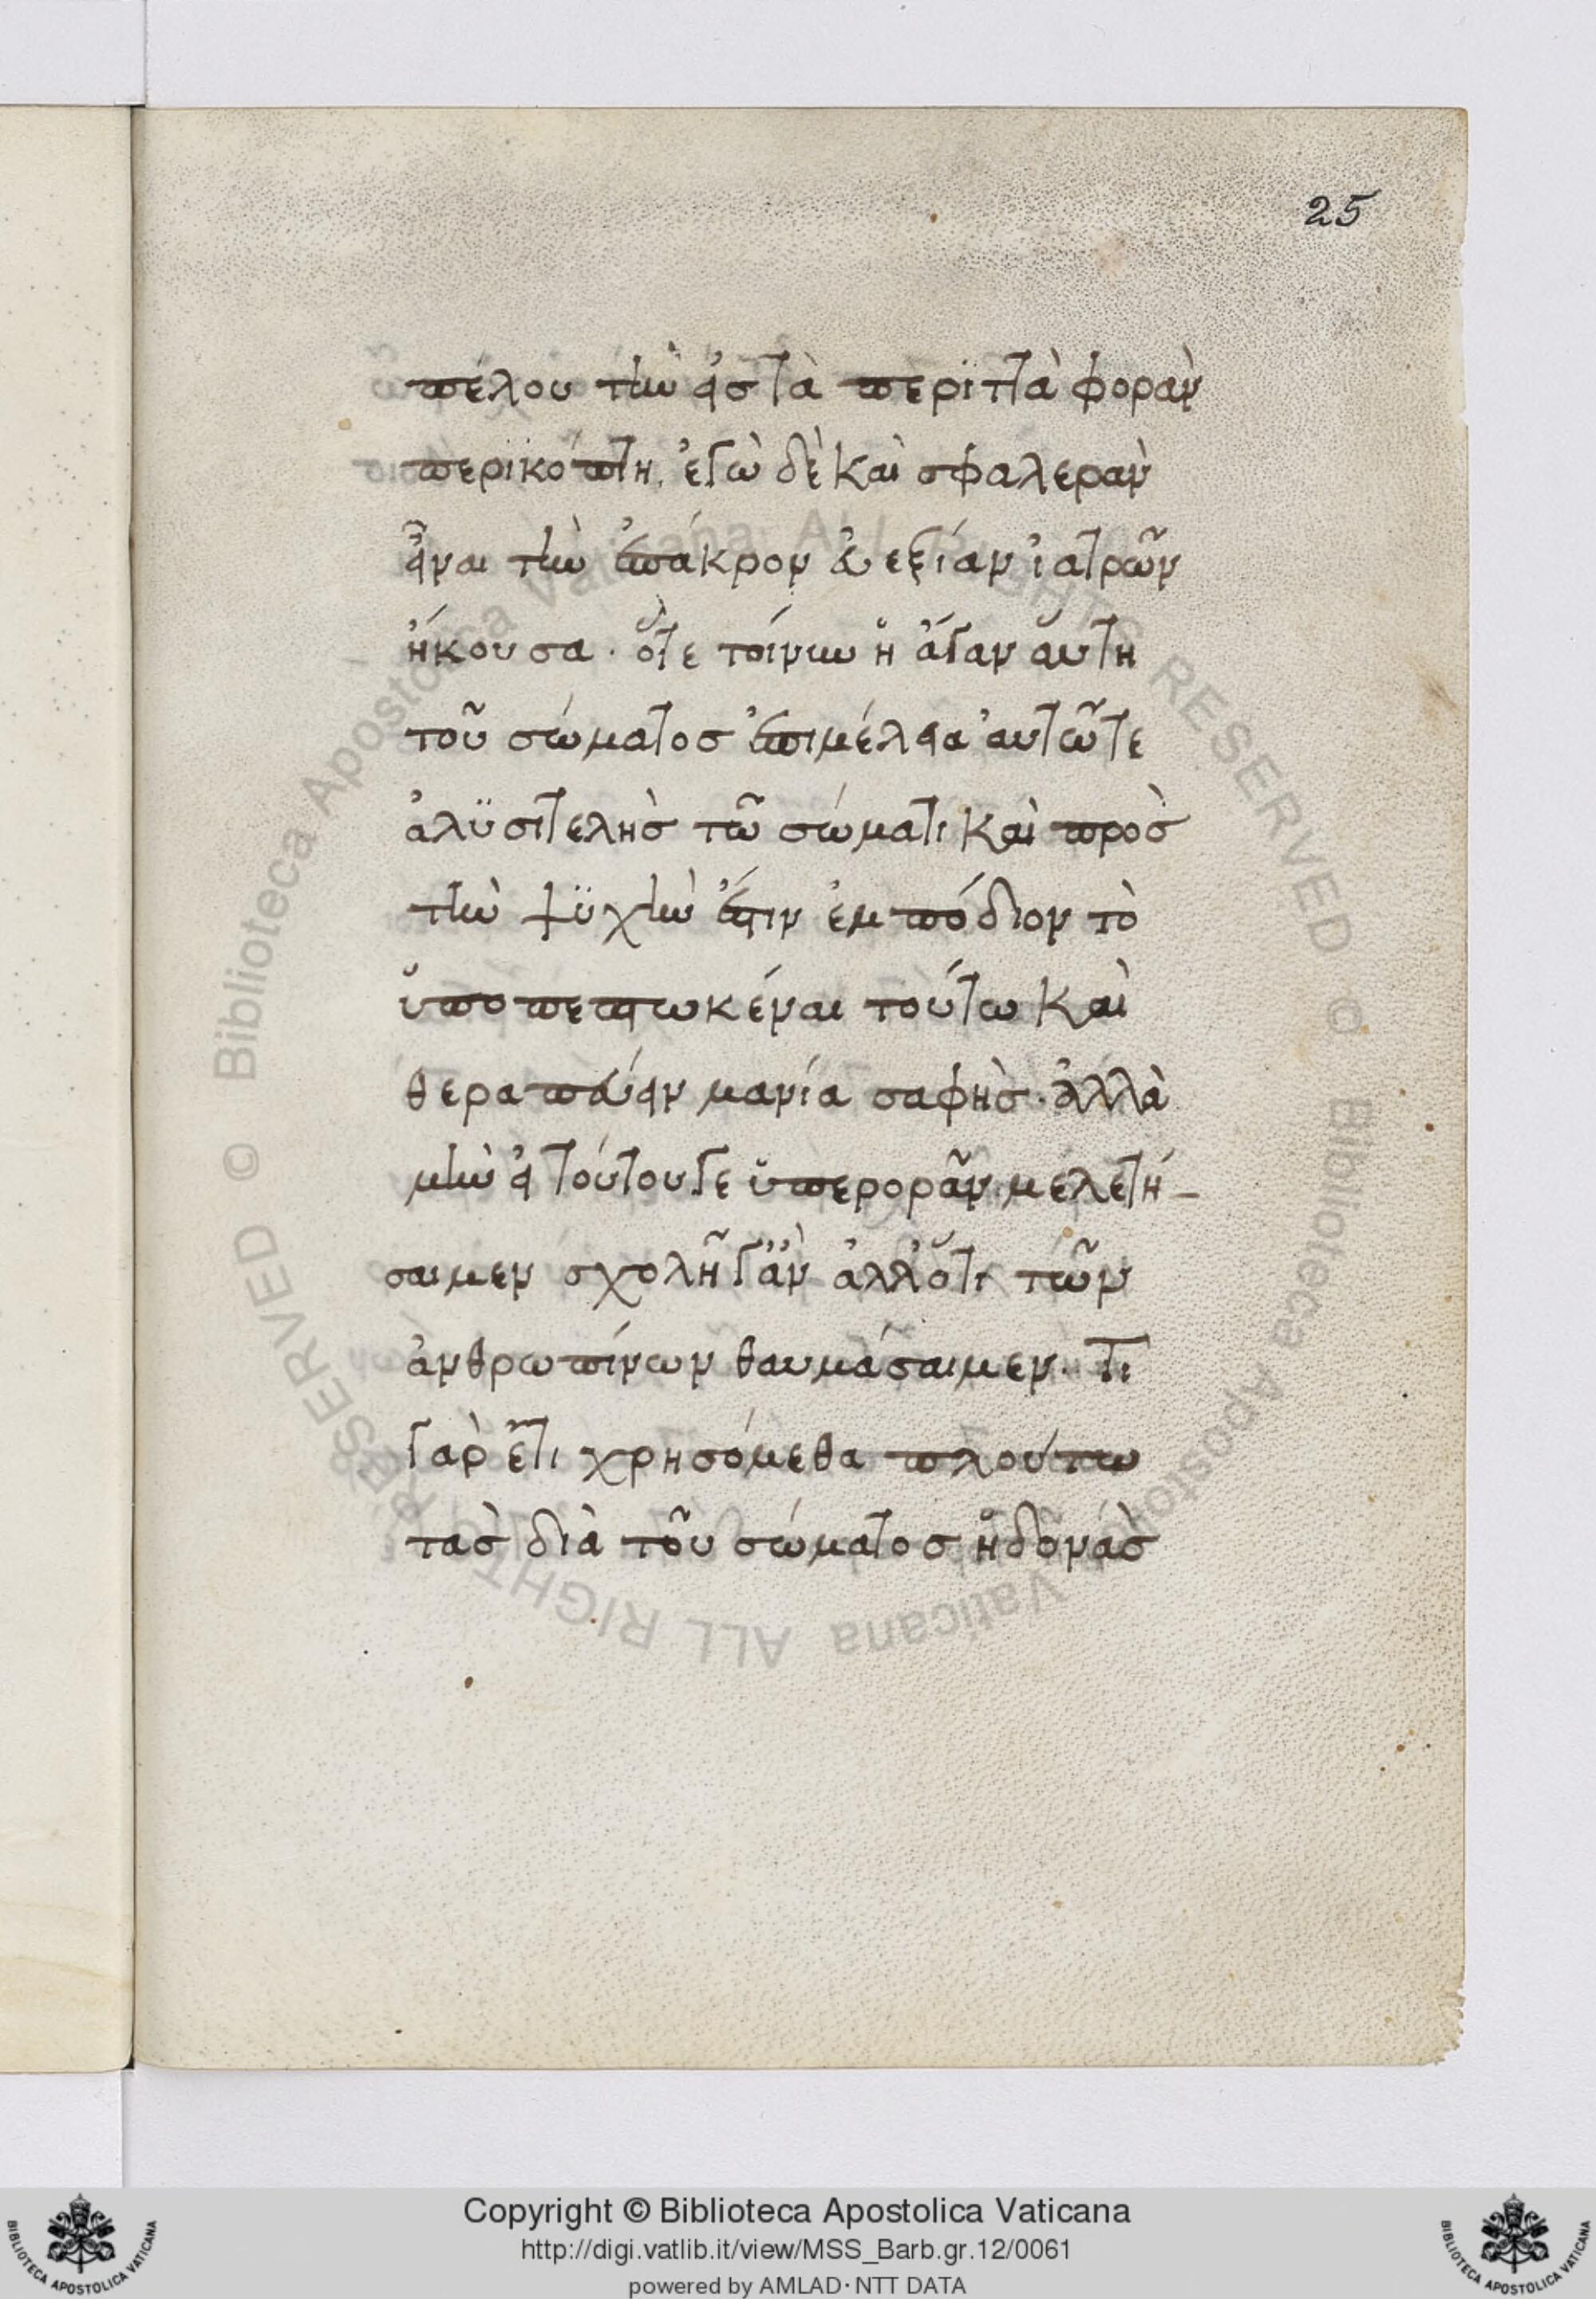 25
πέλου τὴν εἰς τὰ περιττὰ φορὰν
περικόπτη. ἐγὼ δὲ καὶ σφαλερὰν
εἶναι τὴν ἐπάκρον εὐεξίαν ἰατρῶν
ἤκουσα. ὅτε τοίνυν ἡ ἄγαν αὕτη
τοῦ σώματος ἐπιμέλεια αὐτῶ τε
ἀλυσιτελὴς τῶ σώματι καὶ πρὸς
τὴν ψυχὴν ἔστιν ἐμπόδιον τὸ
ὑποπεπτωκέναι τούτω καὶ
θεραπεύειν μανία σαφὴς. ἀλλὰ
μὴν εἰ τούτου γε ὑπερορᾶν μελετή-
σαιμεν σχολῆ γ' ἂν ἄλλό τι τῶν
ἀνθρωπίνων θαυμάσαιμεν. Τι
γὰρ ἔτι χρησόμεθα πλούτω
τὰς διὰ τοῦ σώματος ἡδονὰς
© Biblioteca Apostolica Vaticana ALL RIGHTS RESERVED
© Biblioteca Apostolica Vaticana ALL RIGHTS RESERVED
Copyright © Biblioteca Apostolica Vaticana
http://digi.vatlib.it/view/MSS_Barb.gr.12/0061
powered by AMLAD·NTT DATA
BIBLIOTECA APOSTOLICA VATICANA
BIBLIOTECA APOSTOLICA VATICANA